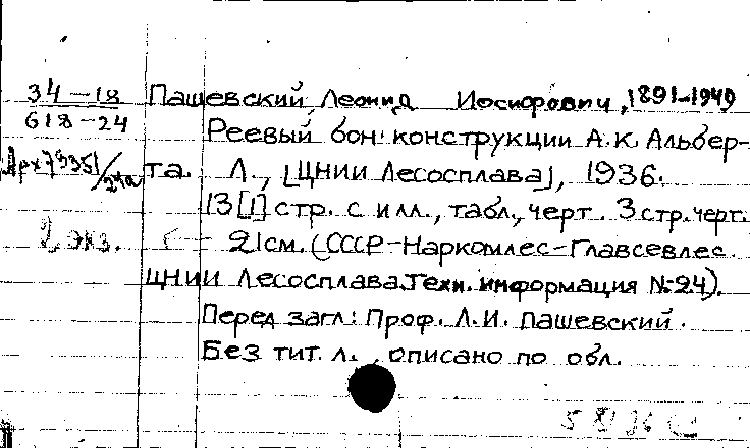 34-18 Пашевский, Леонид Иосифович, 1891-1949
618-24 Реевый бон конструкции А.К. Альбер-
Арх 79351/24а та. Л., [ЦНИИ Лесосплава], 1936.
13 [1] стр. с илл., табл., черт. 3 стр. черт.
2 экз. 21 см. (СССР-Наркомлес-Главсевлес
ЦНИИ Лесосплава. Техн. информация № 24).
Перед загл: Проф. Л.И. Пашевский.
Без тит. л., описано по обл.